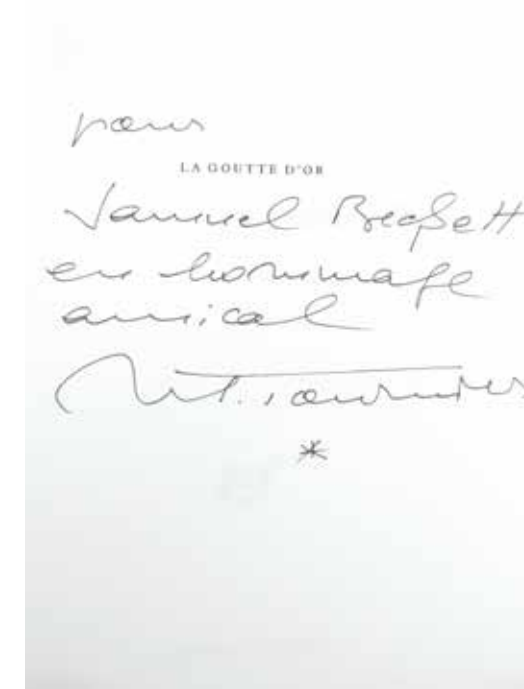 pour
LA GOUTTE D'OR
Samuel Beckett
en hommage
amical
M. Tournier
*